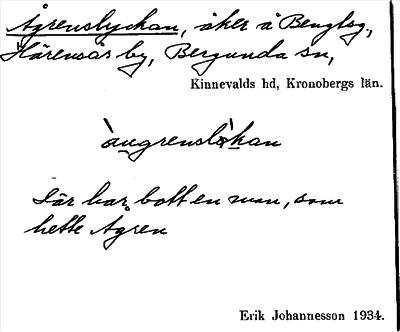 Ågrenslyckan, åker å Bengtsg.,
Härensås by, Bergunda sn,
Kinnevalds hd, Kronobergs län.
Där har bott en man, som
hette Ågren
Erik Johannesson 1934.